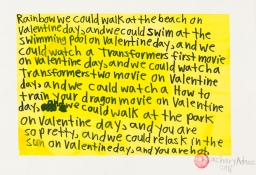 Rainbow we could walk at the beach on
Valentine day, and we could swim at the
swimming pool on Valentine day, and we
could watch a Transformers first movie
on Valentine day, and we could watch a
Transformers two movie on Valentine
day, and we could watch a How to
train your dragon movie on Valentine
day, we could walk at the park
on Valentine day, and you are
so pretty, and we could relask in the
sun on Valentine day, and you are hot